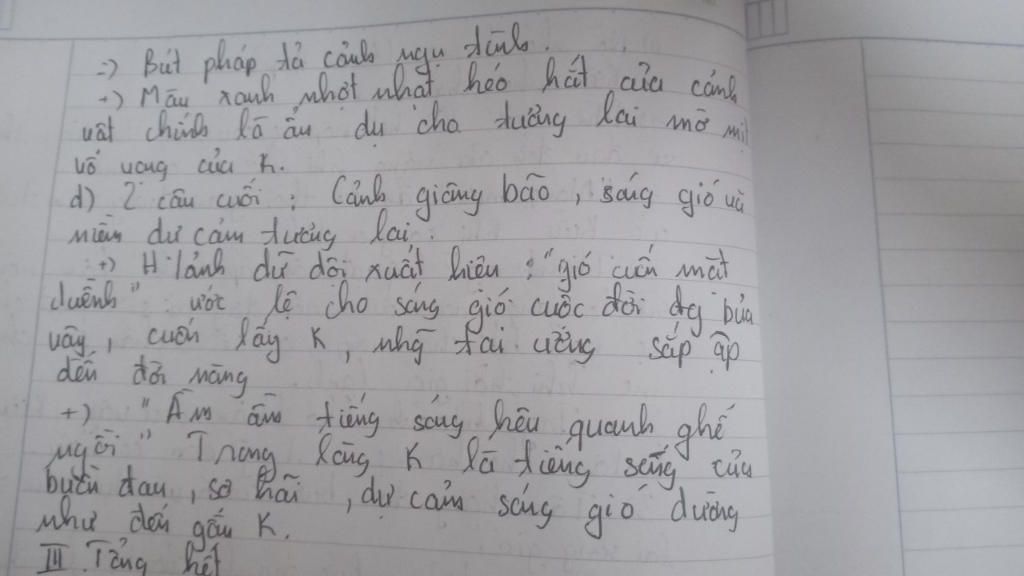 =) Bút pháp tả cảnh ngụ tình.
+) Màu xanh nhợt nhạt héo hắt của cảnh
vật chính là ẩn dụ cho tương lai mờ mịt
vô vọng của K.
d) 2 câu cuối : Cảnh giông bão, sóng gió và
niềm dự cảm tương lai.
+) H.ảnh dữ dội xuất hiện : "gió cuốn mặt
duềnh" ước lệ cho sóng gió cuộc đời đg bủa
vây, cuốn lấy K, nhg tai ương sắp ập
đến đời nàng
+) "Ầm ầm tiếng sóng kêu quanh ghế
ngồi" Trong lòng K là tiếng sóng của
buồn đau, sợ hãi, dự cảm sóng gió dường
như đến gần K.
III. Tổng kết